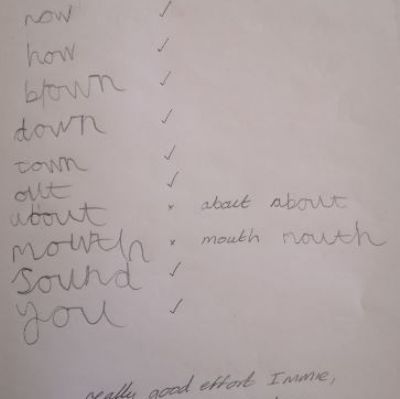 now ✓
how ✓
brown ✓
down ✓
town ✓
out ✓
about × about about
mowth × mouth mouth
sound ✓
you ✓
really good effort Immie,